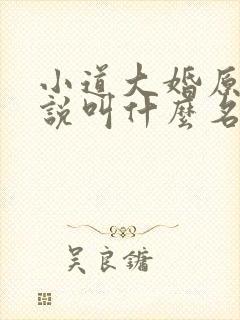 小道大婚原
說叫什麼名
吴良鏞